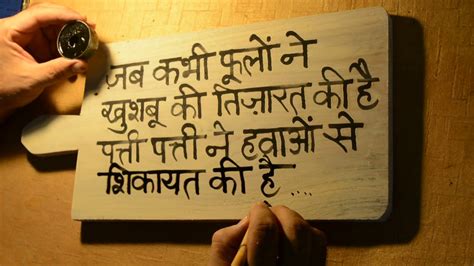 ज़ब कभी फूलों ने
खुशबू की तिज़ारत की है
पत्ती पत्ती ने हवाओं से
शिकायत की है ....